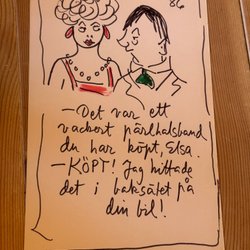 86
—Det var ett
vackert pärlhalsband
du har köpt, Elsa.
—KÖPT! Jag hittade
det i baksätet på
din bil!